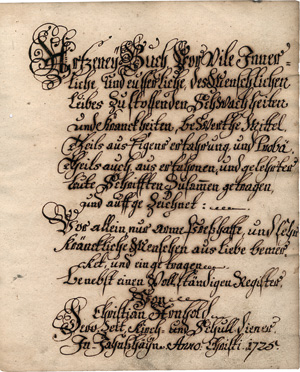 Artzeney Buch Vor Viele Inner-
liche, und euserliche, des Menschlichen
Leibes Zu stossenden Schwachheiten
und Kranckheiten, bewerthe Mittel
Theils aus Eigner erfahrung, und Probe
theils auch aus erfahrnen, und gelehrter
leute Schrifften Zusamen getragen,
und auffge Zeichnet:
Vor allein nur Arme Presthaffte, und
Kränckliche Menschen aus Liebe bemer-
cket, und eingetragen
Benebst einen Vollständigen Register.
Von
Christian
Zeit, Kirch- und Schull diener.
In Anno Christi. 1725